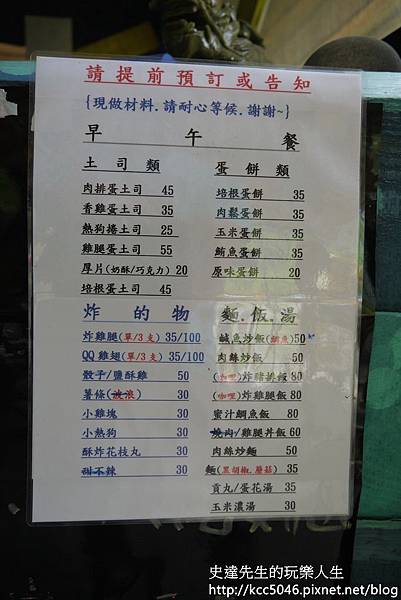 請提前預訂或告知
{現做材料.請耐心等候.謝謝~}
早 午 餐
土司類
肉排蛋土司 45
香雞蛋土司 35
熱狗捲土司 25
雞腿蛋土司 55
厚片(奶酥/巧克力) 20
培根蛋土司 45
蛋餅類
培根蛋餅 35
肉鬆蛋餅 35
玉米蛋餅 35
鮪魚蛋餅 35
原味蛋餅 20
炸的物
炸雞腿(單/3支) 35/100
QQ雞翅(單/3支) 35/100
骰子/鹽酥雞 50
薯條(波浪) 30
小雞塊 30
小熱狗 30
酥炸花枝丸 30
甜不辣 30
麵.飯.湯
鹹魚炒飯(鯛魚)50
肉絲炒飯 50
(咖哩)炸豬排飯 80
(咖哩)炸雞腿飯 80
蜜汁鯛魚飯 80
燒肉/雞腿丼飯 60
肉絲炒麵 50
麵(黑胡椒.蘑菇) 35
貢丸/蛋花湯 35
玉米濃湯 30
史達先生的玩樂人生
http://kcc5046.pixnet.net/blog